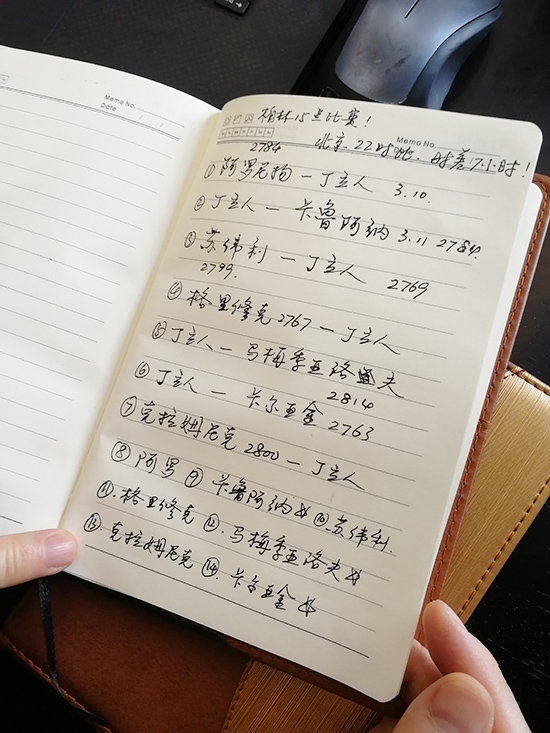 Memo No.
Date
柏林15点比赛!
Memo No.
北京22时始.时差7小时!
2784
① 阿罗尼扬 — 丁立人 3.10.
② 丁立人 — 卡鲁阿纳 3.11 2784.
③ 苏伟利 — 丁立人 2769
2799.
④ 格里修克 2767 — 丁立人
⑤ 丁立人 — 马梅季亚洛夫
2814
⑥ 丁立人 — 卡尔亚金 2763
⑦ 克拉姆尼克 2800 — 丁立人
⑧ 阿罗 ⑨ 卡鲁阿纳 ⑩ 苏伟利.
⑪. 格里修克 ⑫. 马梅季亚洛夫
⑬. 克拉姆尼克 ⑭. 卡尔亚金